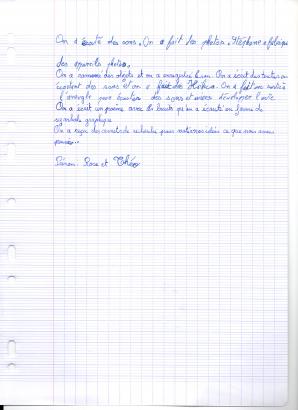 On a écouté des sons. On a fait des photos. Stéphane a fabriqué
des appareils photos.
On a ramassé des objets et on a enregistré. On a écrit des textes en
écoutant des sons et on a fait des Haïkus. On a fait une sortie
à l'aveugle pour écouter des sons et mieux développer l'ouïe.
On a écrit un poème avec les bruits qu'on a écouté en forme de
symbole graphique.
On a reçu des carnets de recherche pour noter nos idées ce que nous avons
pensé...
Rose et Théo